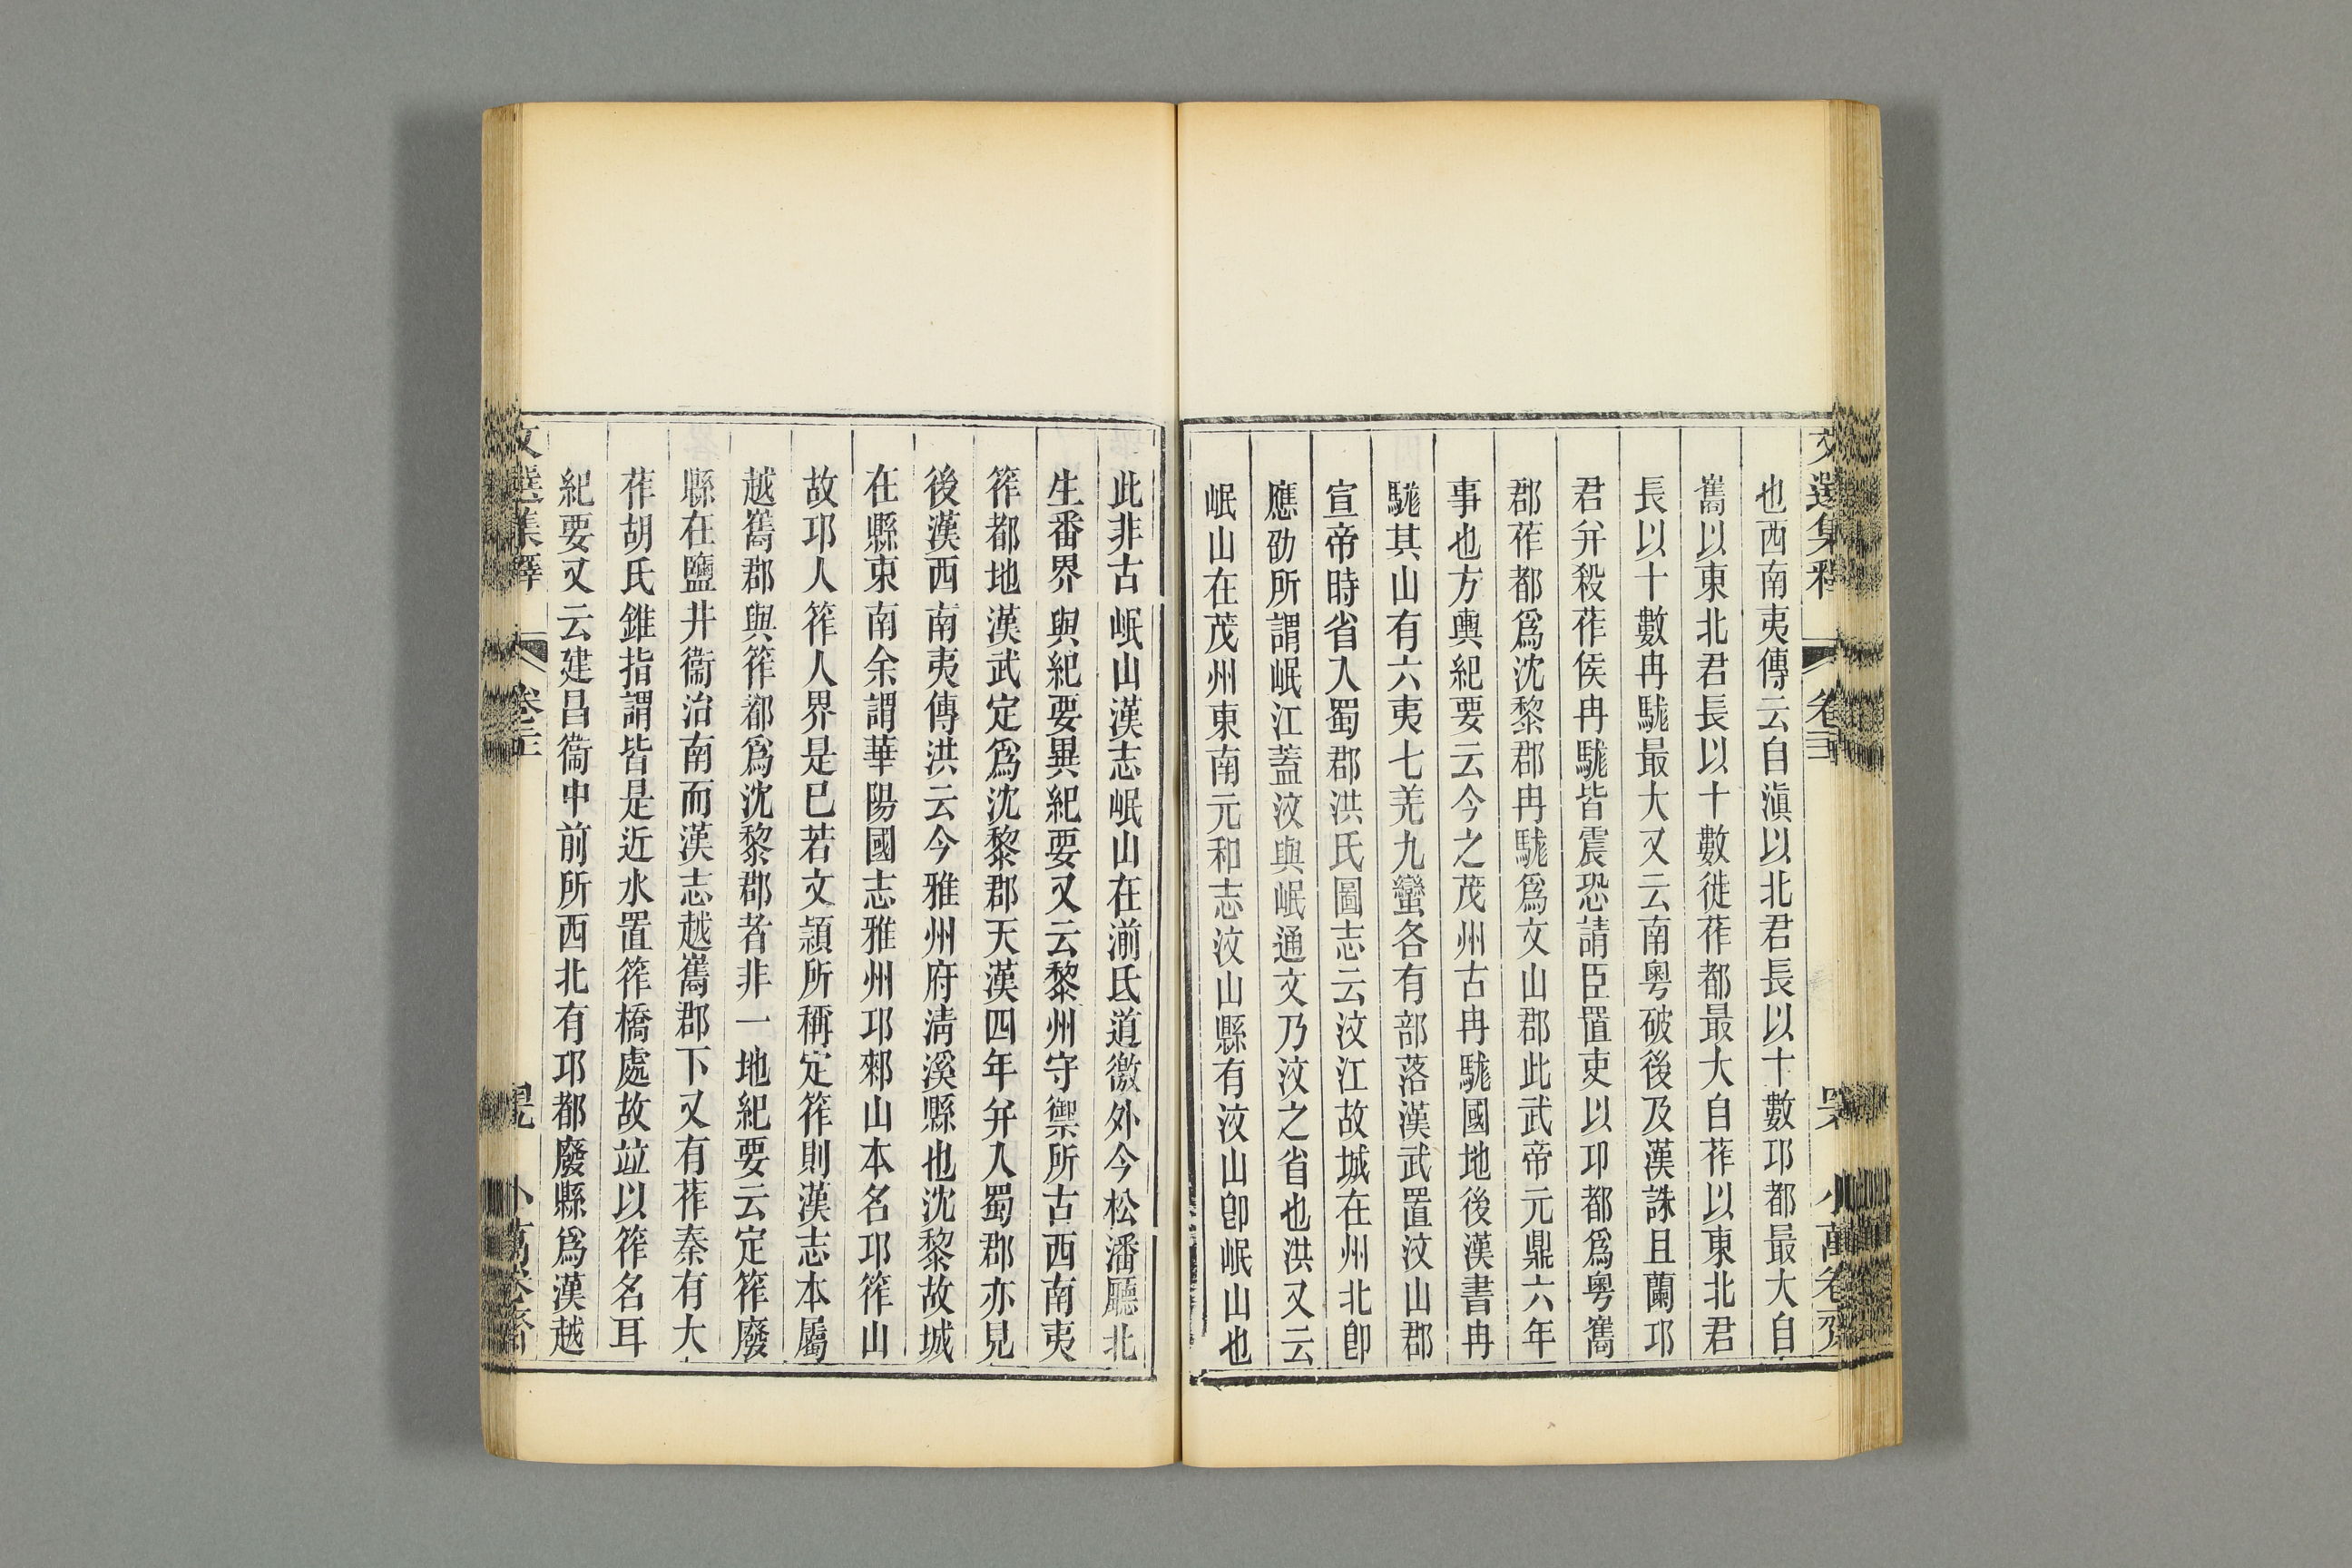 也西南夷傳云自滇以北君長以十數邛都最大自
嶲以東北君長以十數徙莋都最大自莋以東北君
長以十數冉駹最大又云南粤破後及漢誅且蘭邛
君幷殺莋侯冉駹皆震恐請臣置吏以邛都爲粤嶲
郡莋都爲沈黎郡冉駹爲文山郡此武帝元鼎六年
事也方輿紀要云今之茂州古冉駹國地後漢書冉
駹其山有六夷七羌九蠻各有部落漢武置汶山郡
宣帝時省入蜀郡洪氏圖志云汶江故城在州北卽
應劭所謂岷江蓋汶與岷通文乃汶之省也洪又云
岷山在茂州東南元和志汶山縣有汶山卽岷山也
此非古岷山漢志岷山在湔氐道徼外今松潘廳北
生番界與紀要異紀要又云黎州守禦所古西南夷
筰都地漢武定爲沈黎郡天漢四年幷入蜀郡亦見
後漢西南夷傳洪云今雅州府清溪縣也沈黎故城
在縣東南余謂華陽國志雅州邛郲山本名邛筰山
故邛人筰人界是已若文頴所稱定筰則漢志本屬
越嶲郡與筰都爲沈黎郡者非一地紀要云定筰廢
縣在鹽井衞治南而漢志越嶲郡下又有莋秦有大
莋胡氏錐指謂皆是近水置筰橋處故竝以筰名耳
紀要又云建昌衞中前所西北有邛都廢縣爲漢越
文選集釋 卷三 小萬卷齋